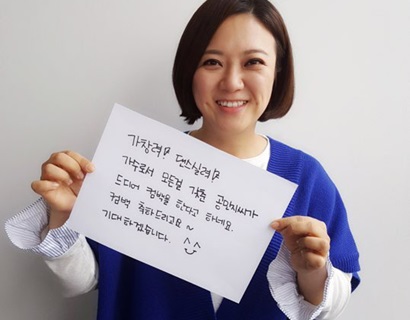 가창력? 댄스실력?
가수로서 모든걸 갖춘 곧만지씨가
드디어 컴백을 한다고 하네요.
컴백 축하드리고요~
기대하겠습니다. ^^